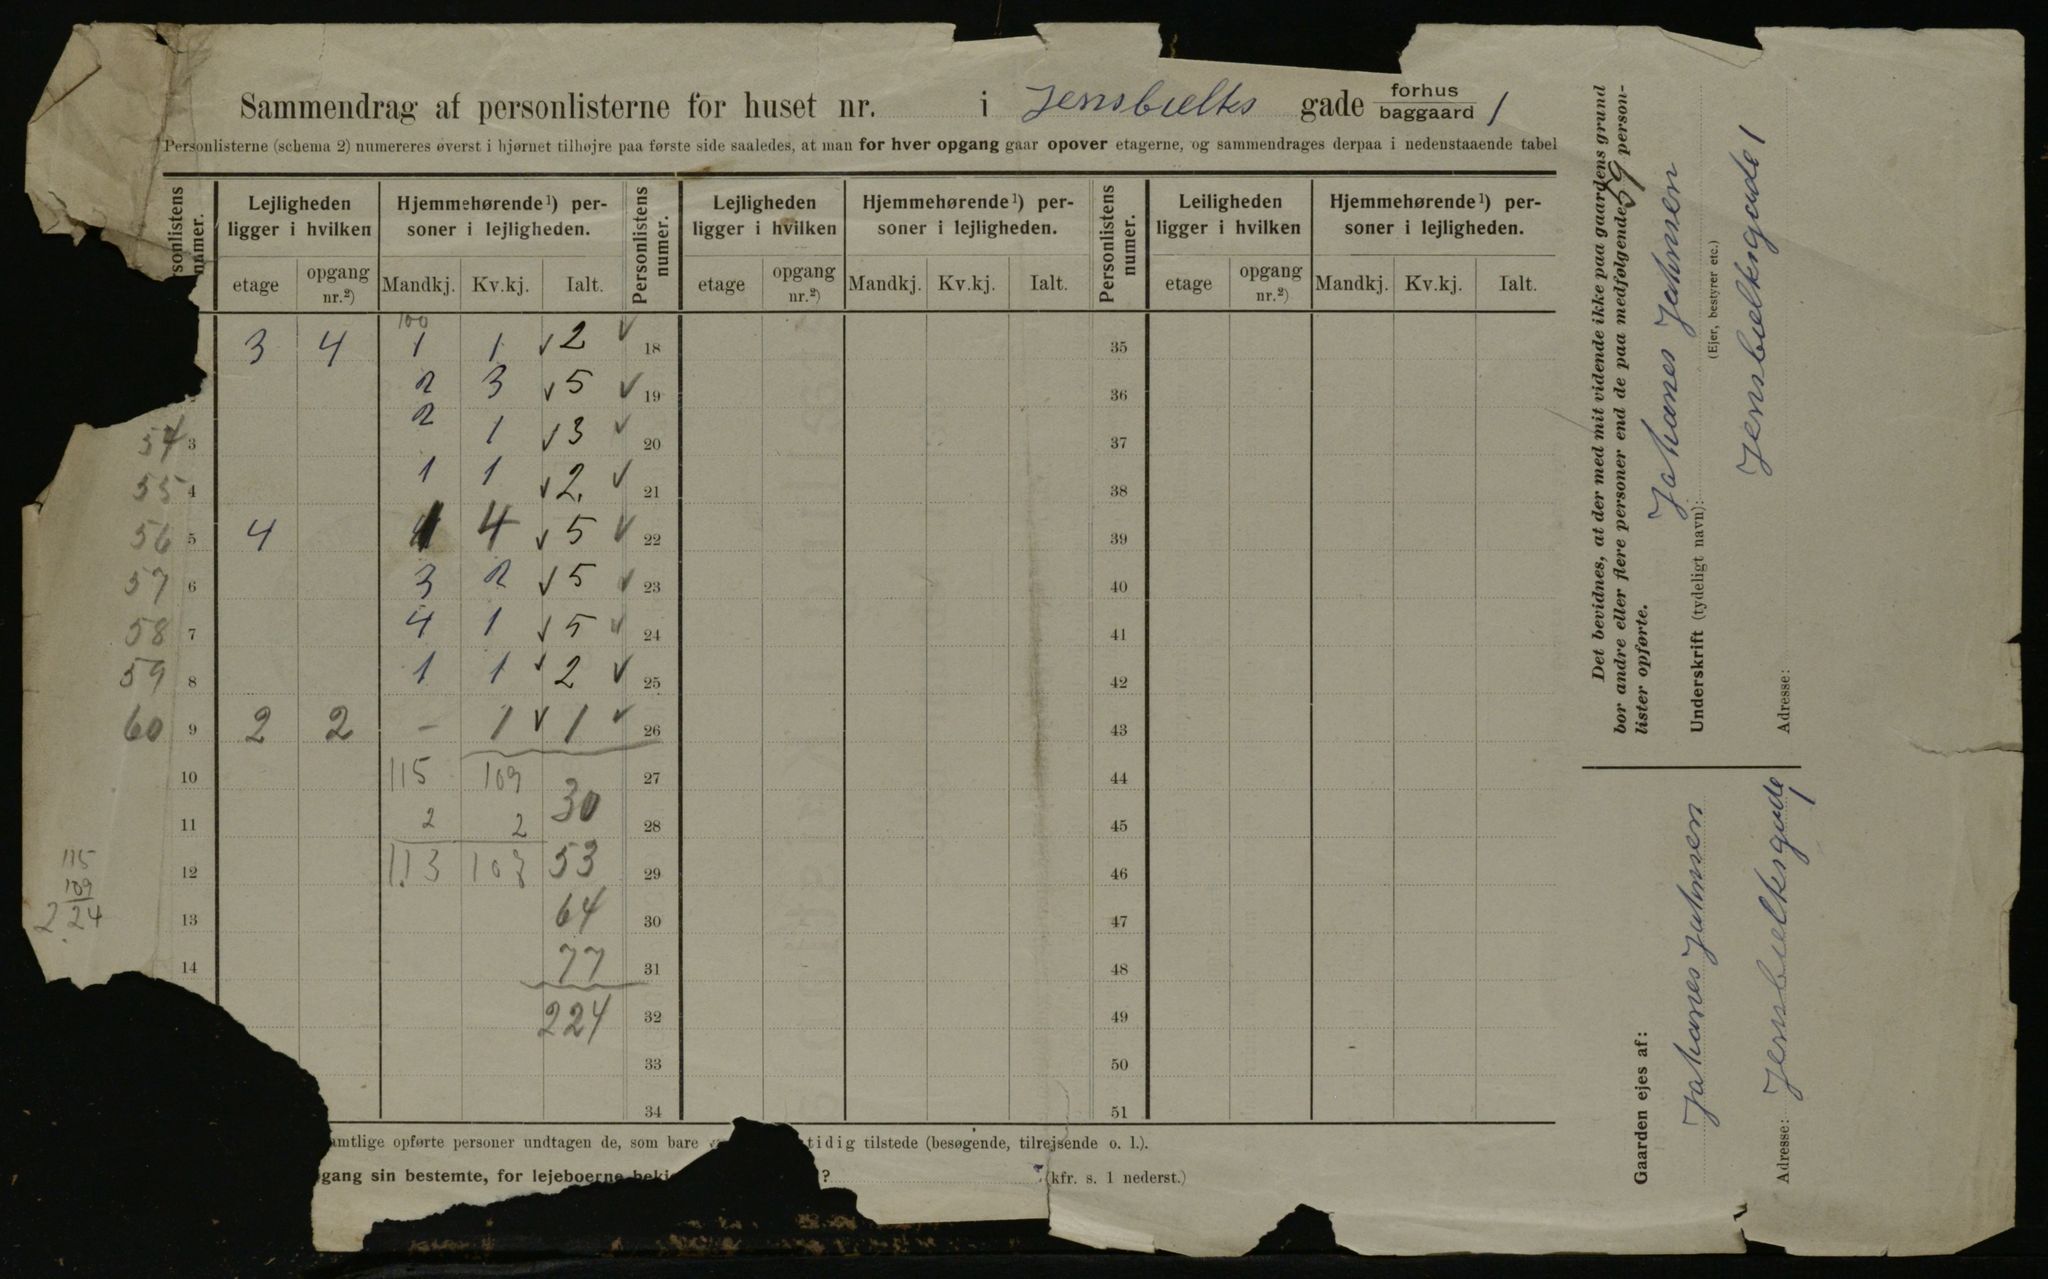 Sammendrag af personlisterne for huset nr. i Jensbielks gade forhus baggaard 1
Personlisterne (schema 2) numereres øverst i hjørnet tilhøjre paa første side saaledes, at man for hver opgang gaar opover etagerne, og sammendrages derpaa i nedenstaaende tabel
sonlistens numer. Lejligheden ligger i hvilken Hjemmehørende¹) personer i lejligheden. Personlistens numer. Lejligheden ligger i hvilken Hjemmehørende¹) personer i lejligheden. Personlistens numer. Leiligheden ligger i hvilken Hjemmehørende¹) personer i lejligheden.
etage opgang nr.²) Mandkj. Kv.kj. Ialt. etage opgang nr.²) Mandkj. Kv.kj. Ialt. etage opgang nr.²) Mandkj. Kv.kj. Ialt.
100
3 4 1 1 ✓ 2 ✓ 18 35
2 3 ✓ 5 ✓ 19 36
54 3 2 1 ✓ 3 ✓ 20 37
55 4 1 1 ✓ 2. ✓ 21 38
56 5 4 1 4 ✓ 5 ✓ 22 39
57 6 3 2 ✓ 5 ✓ 23 40
58 7 4 1 ✓ 5 ✓ 24 41
59 8 1 1 ✓ 2 ✓ 25 42
60 9 2 2 - 1 ✓ 1 ✓ 26 43
10 115 109 27 44
30
11 2 2 28 45
12 113 107 53 29 46
13 64 30 47
14 77 31 48
224 32 49
33 50
34 51
115
109
224
amtlige opførte personer undtagen de, som bare tidig tilstede (besøgende, tilrejsende o. l.).
gang sin bestemte, for lejeboerne ? (kfr. s. 1 nederst.)
Det bevidnes, at der med mit vidende ikke paa gaardens grund
bor andre eller flere personer end de paa medfølgende 59 person-
lister opførte.
Underskrift (tydeligt navn): Johanes Johnsen
(Ejer, bestyrer etc.)
Adresse: Jensbielksgade 1
Gaarden ejes af:
Johanes Johnsen
Adresse: Jensbielksgade 1